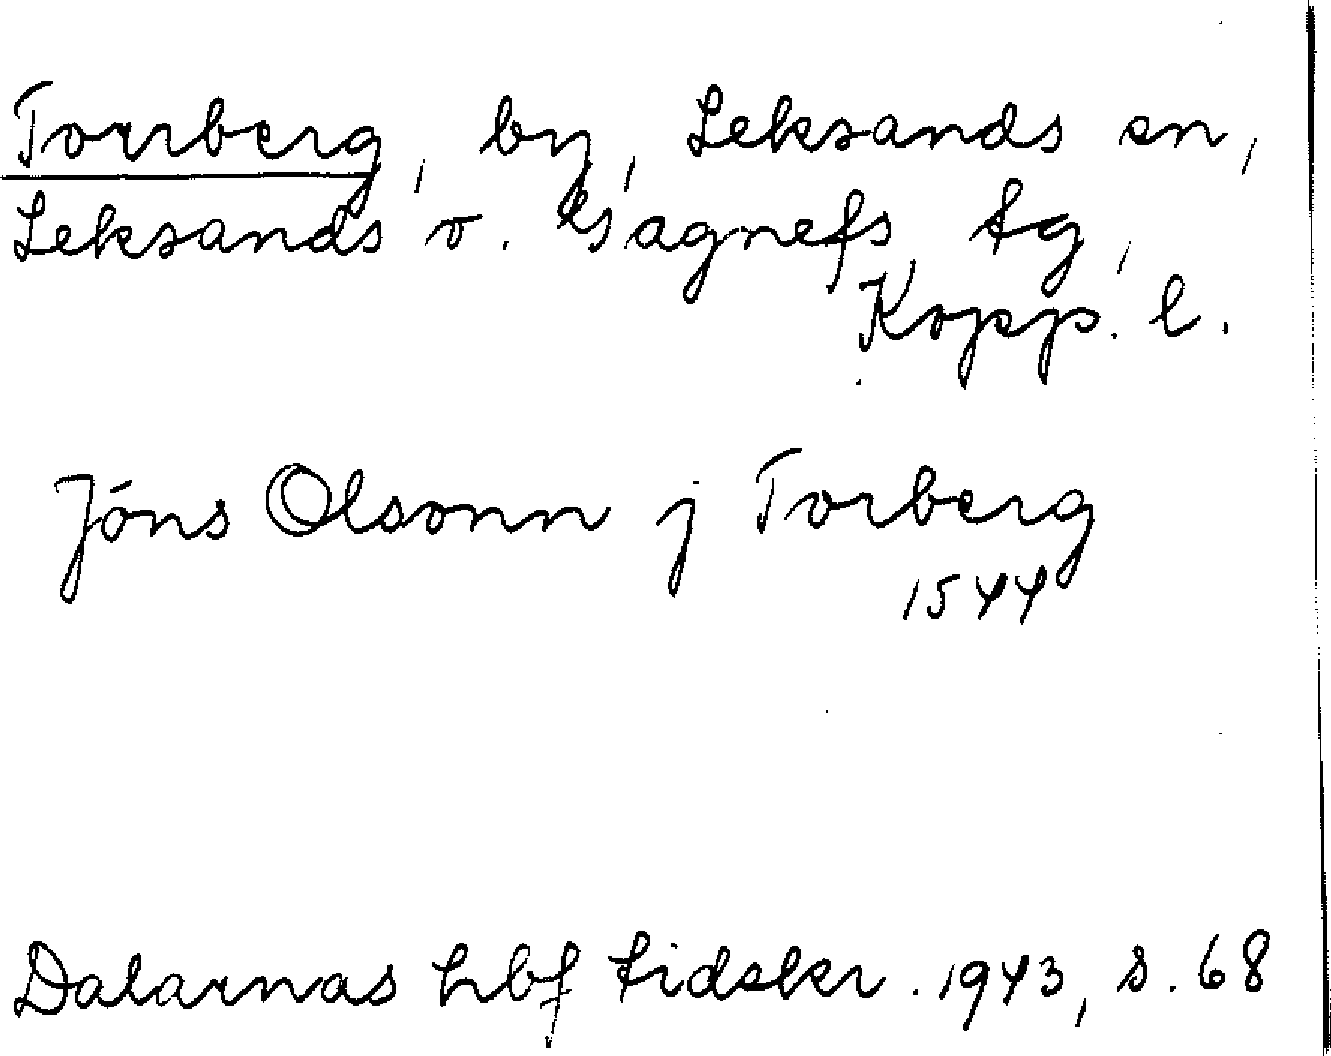 Torrberg, by, Leksands sn,
Leksands o. Gagnefs tg,
Kopp. l.
Jóns Olsonn j Torberg
1544
Dalarnas hbf tidskr. 1943, s. 68